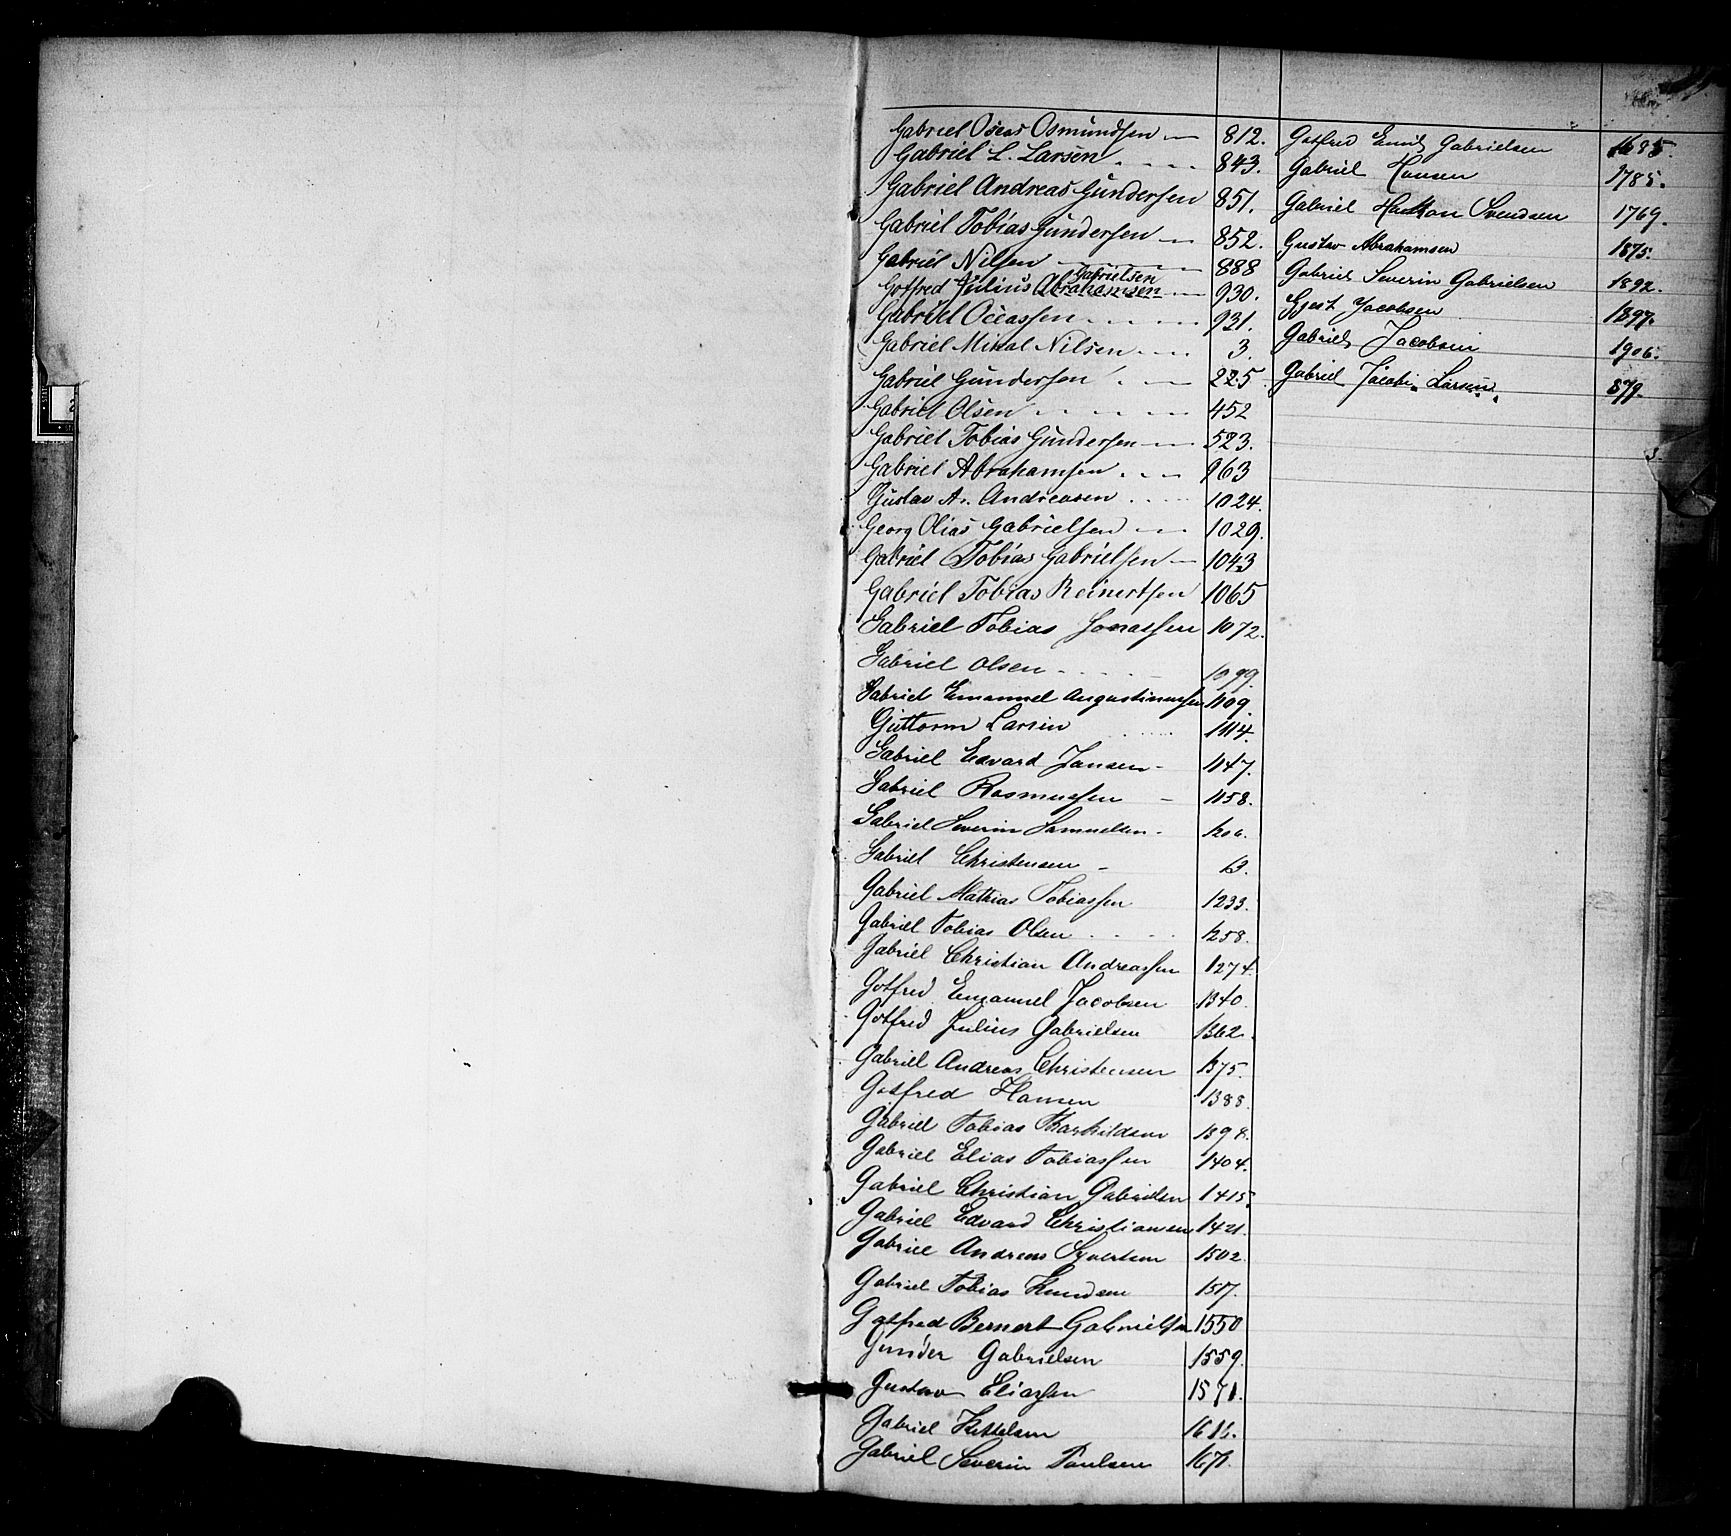 Gabriel Oseas Osmundsen — 812.
Gabriel L. Larsen . . . . 843.
Gabriel Andreas Gundersen 851.
Gabriel Tobias Gundersen — 852.
Gabriel Nilsen 888
Gabrielsen
Gotfred Julius Abrahamsen — 930.
Gabriel Oseassen 931.
Gabriel Mikal Nilsen 3.
Gabriel Gundersen 225.
Gabriel Olsen 452
Gabriel Tobias Gundersen 523.
Gabriel Abrahamsen 963
Gustav A. Andreasen 1024.
Georg Olias Gabrielsen 1029.
Gabriel Tobias Gabrielsen 1043
Gabriel Tobias Reinertsen 1065
Gabriel Tobias Jonassen 1072.
Gabriel Olsen 1099.
Gabriel Emanuel Augustinussen 1109.
Guttorm Larsen 1114.
Gabriel Edvard Jansen - 1147.
Gabriel Rasmussen - 1158.
Gabriel Severin Samuelsen -
Gabriel Christensen - 13.
Gabriel Mathias Tobiassen 1233.
Gabriel Tobias Olsen . . . . 1258.
Gabriel Christian Andreassen 1274.
Gotfred Emanuel Jacobsen 1340.
Gotfred Julius Gabrielsen 1362.
Gabriel Andreas Christensen 1375.
Gotfred Hansen 1388.
Gabriel Tobias Tharkildsen 1398.
Gabriel Elias Tobiassen 1404.
Gabriel Christian Gabrielsen 1415.
Gabriel Edvard Christiansen 1421.
Gabriel Andreas Syvertsen 1502.
Gabriel Tobias Knudsen 1517.
Gotfred Bernert Gabrielsen 1550
Gunder Gabrielsen 1559.
Gustav Eliassen 1571.
Gabriel Kettelsen
Gabriel Severin Paulsen 1671.
Gotfred Emil Gabrielsen 1685.
Gabriel Hansen 1785.
Gabriel Haakon Svendsen 1769.
Gustav Abrahamsen 1875.
Gabriel Severin Gabrielsen 1892.
Gjest Jacobsen 1897.
Gabriel Jacobsen 1906.
Gabriel Jacob Larsen 879.